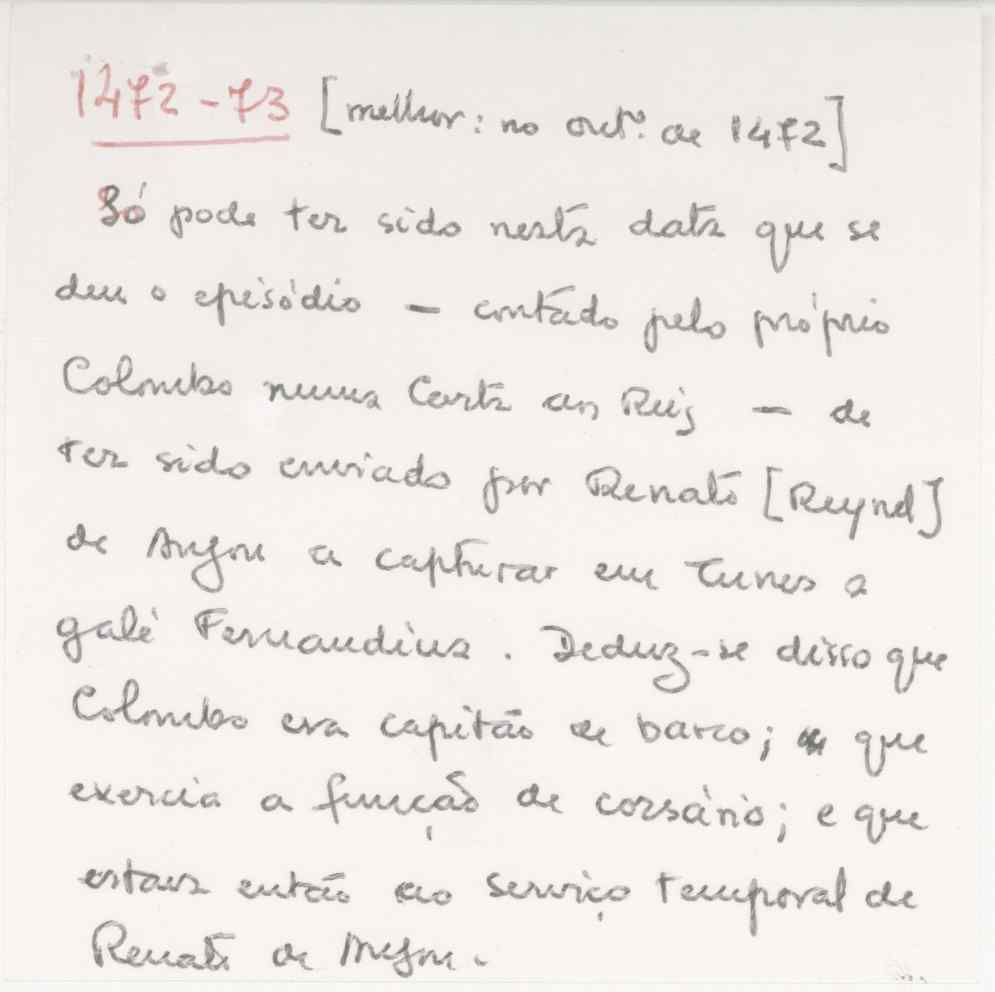 1472-73 [melhor: no outº. de 1472]
Só pode ter sido nesta data que se
deu o episódio — contado pelo próprio
Colombo numa Carta aos Reis — de
ter sido enviado por Renato [Reynd]
de Anjou a capturar em Tunes a
galé Fernandina. Deduz-se disso que
Colombo era capitão de barco; que
exercia a função de corsário; e que
estava então ao serviço temporal de
Renato de Anjou.